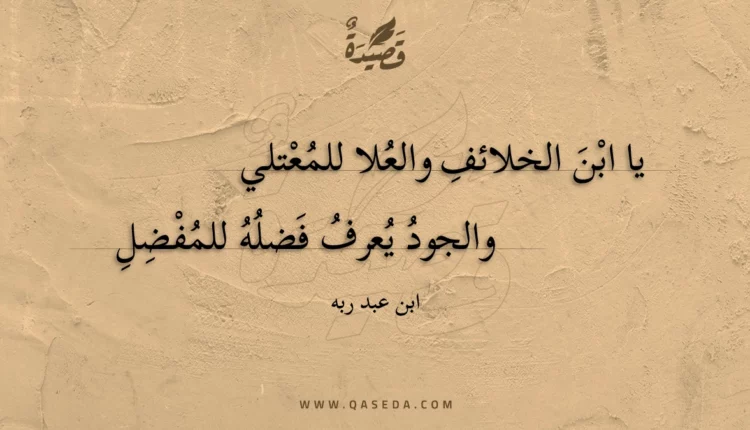 قَصِيْدَةٌ
يا ابْنَ الخلائفِ والعُلا للمُعْتلي
والجودُ يُعرفُ فَضلُهُ للمُفْضِلِ
ابن عبد ربه
WWW.QASEDA.COM